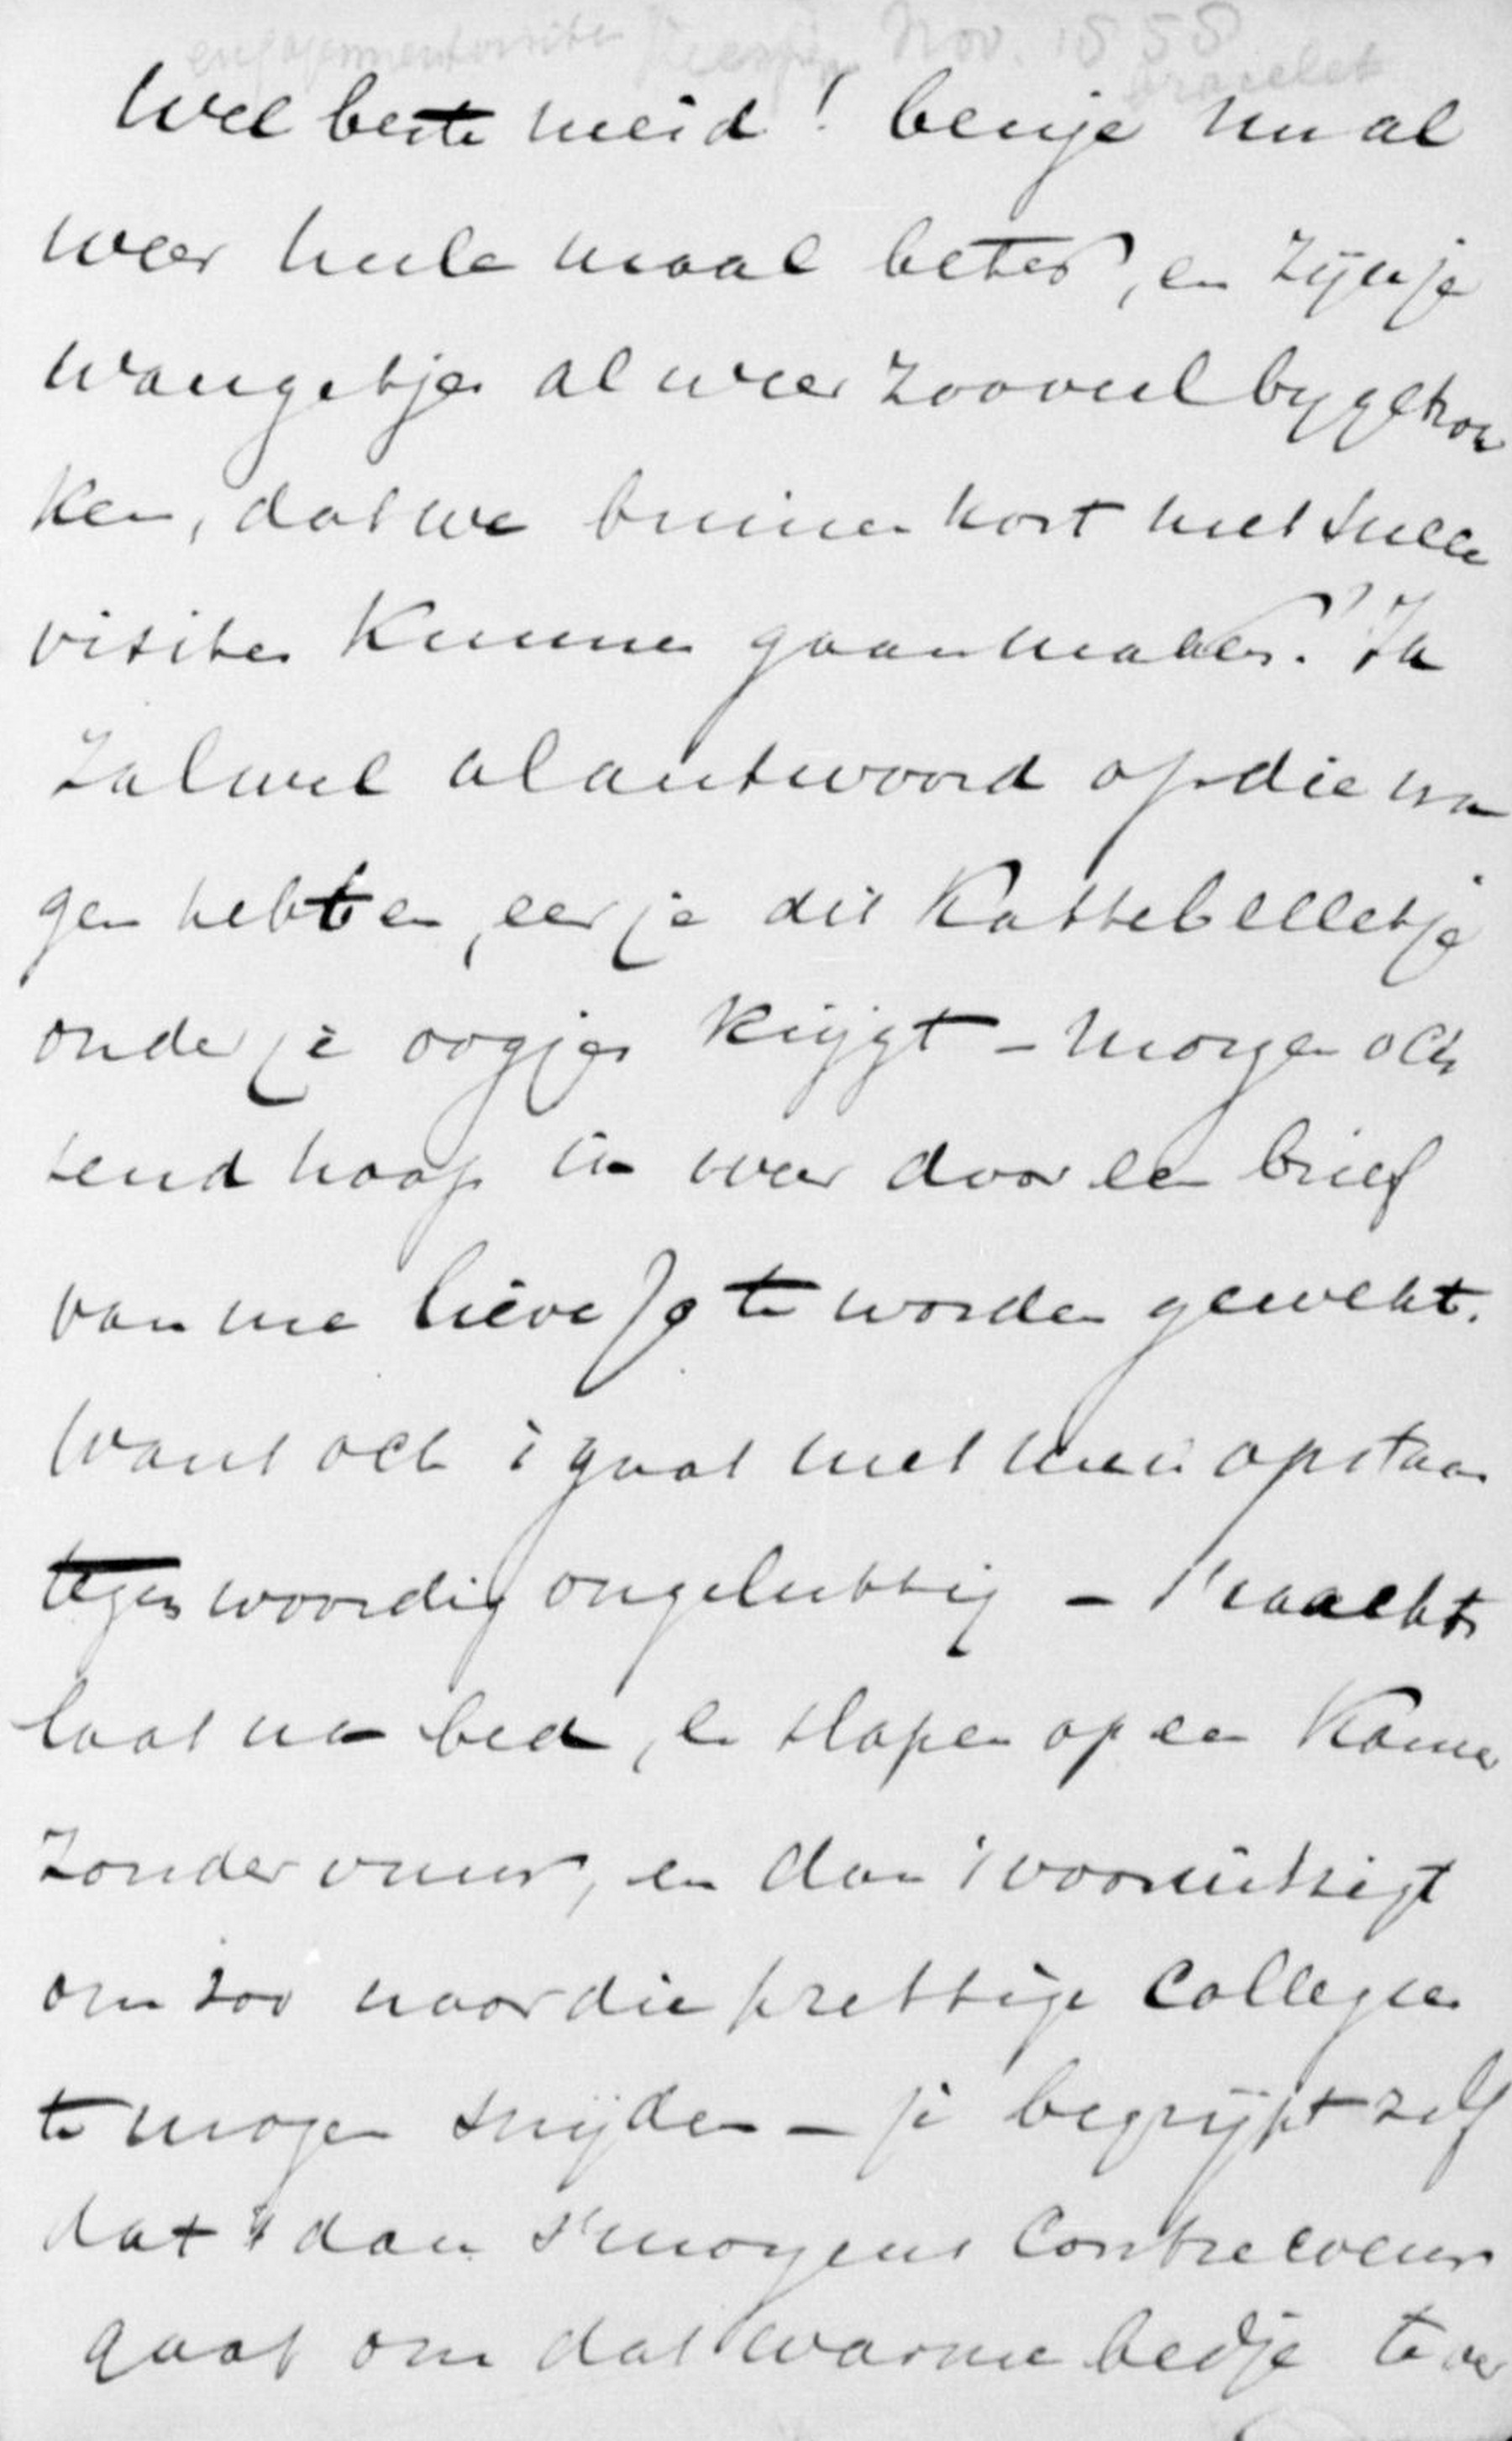 engagementvisites Nov. 1858
bracelet
Wel beste meid! benje nu al
weer heele maal beter, en zijn je
wangetjes al weer zooveel bygetrok
ken, dat we binnen kort met succes
visites kunnen gaan maken? Ik
zal wel al antwoord op die vra
gen hebben, eer je dit Kattebelletje
onder je oogjes krijgt - morgen och
tend hoop ik weer door een brief
van me lieve Jo te worden gewekt.
Want och 't gaat met mein opstaan
tegenswoordig ongelukkig - s'naachts
laat na bed, en slapen op een Kamer
zonder vuur, en dan 't vooruitzigt
om zoo naar die prettige Collegies
te mogen snijden - je begrijpt zelf
dat 't dan s'morgens Contrecoeur
gaat om dat warme bedje te ver